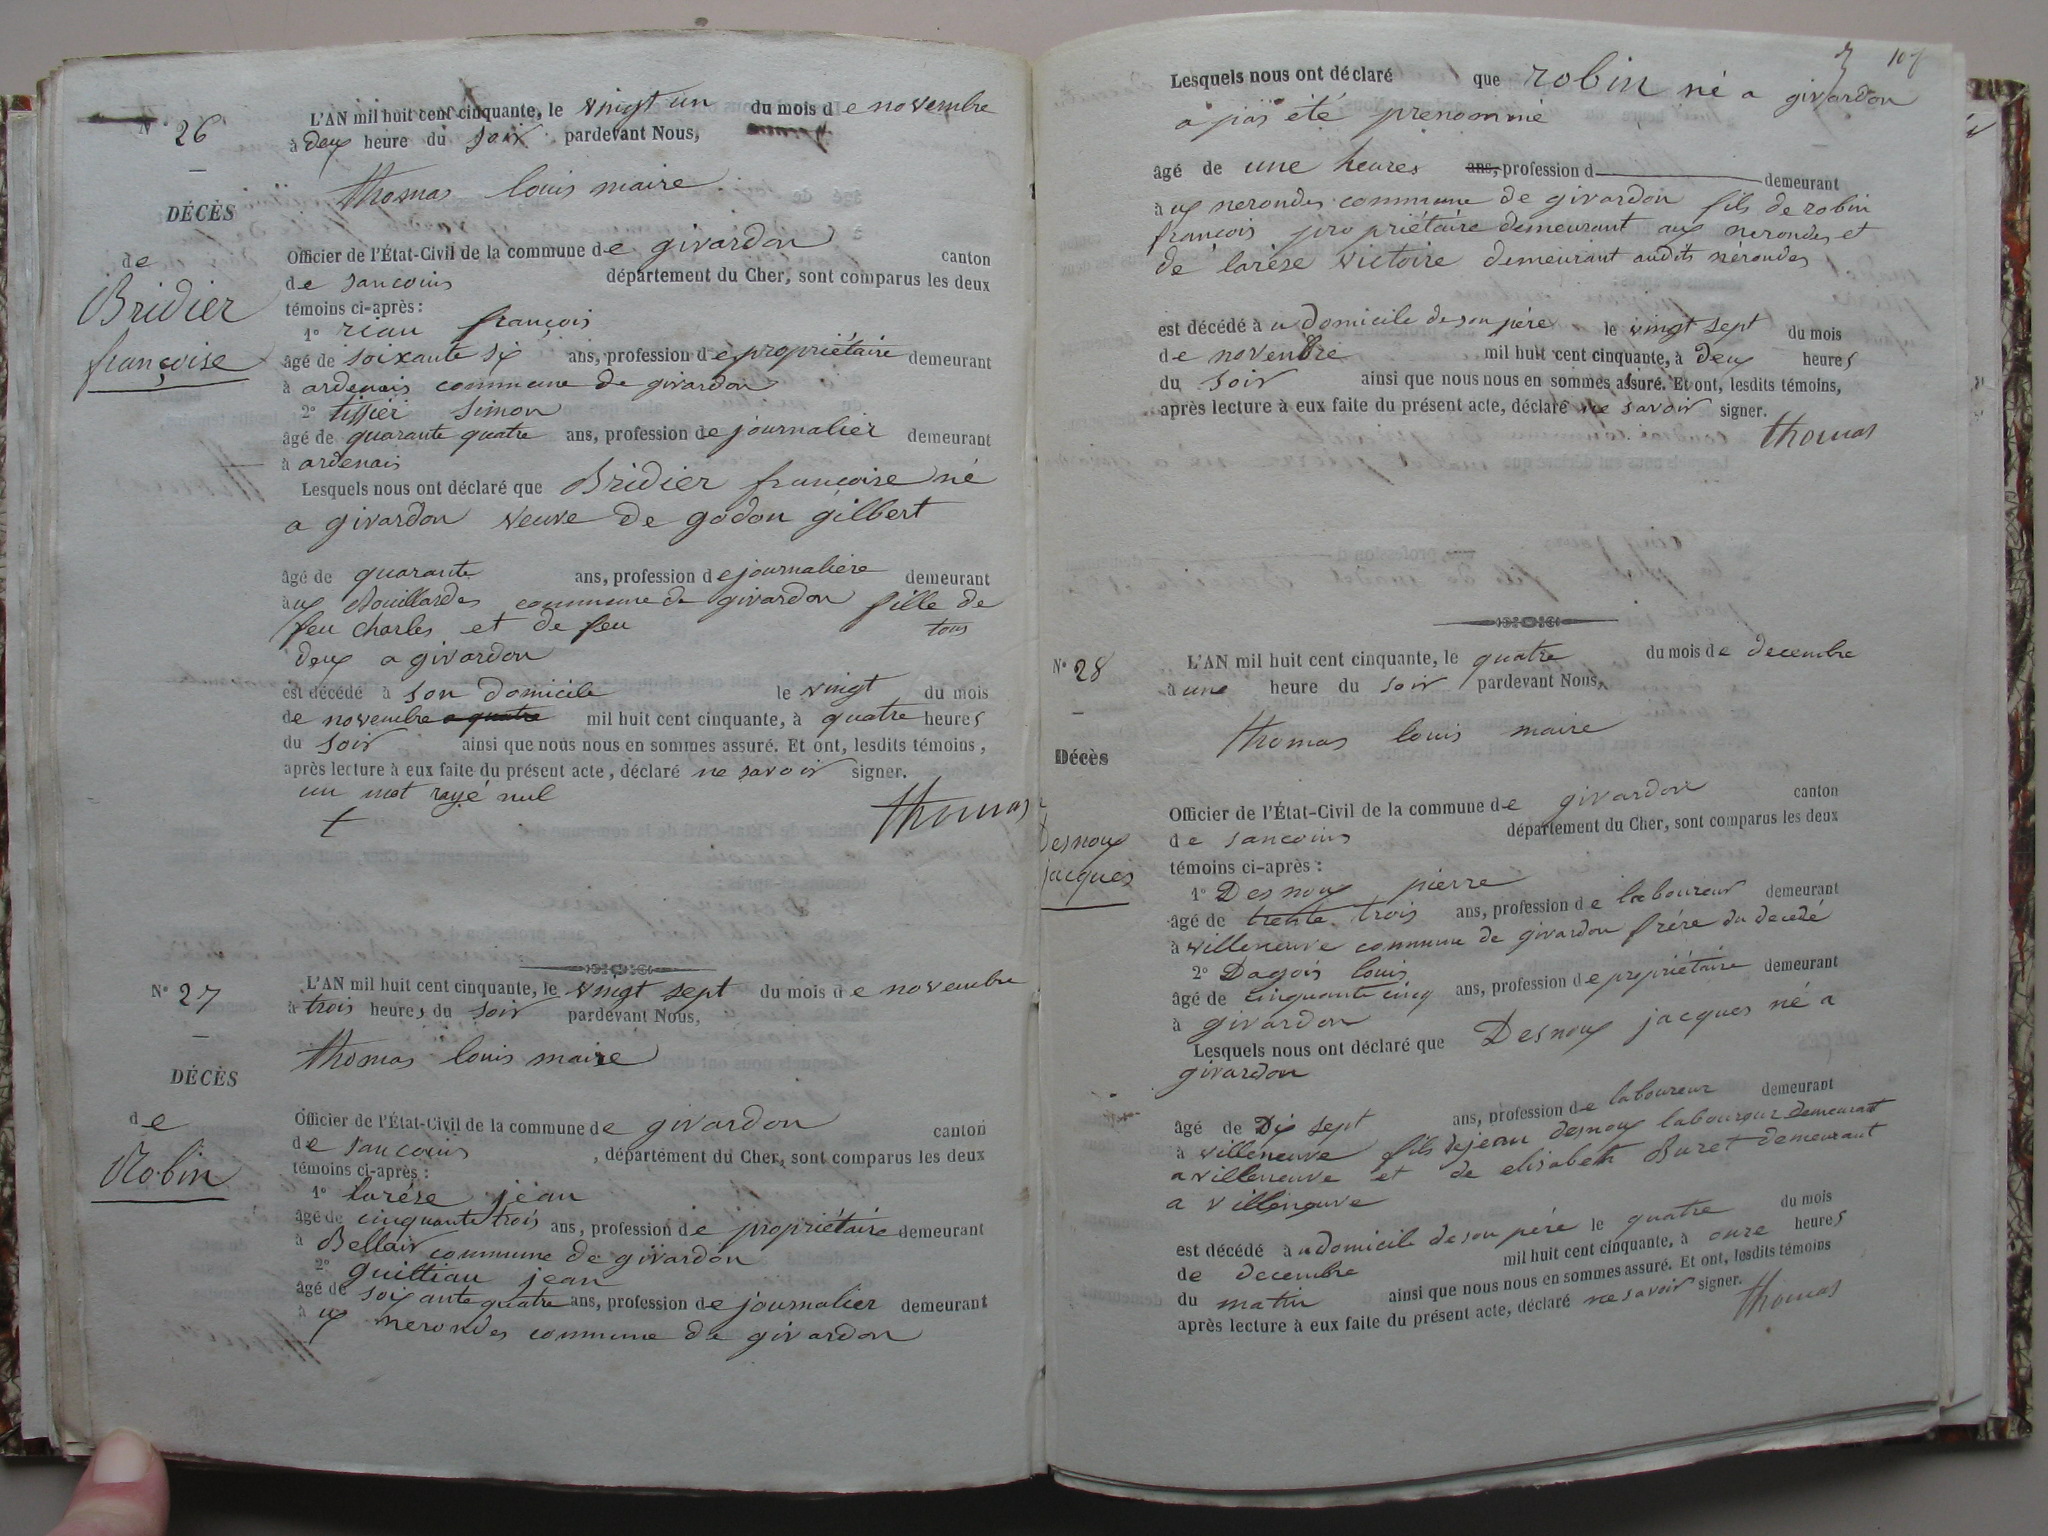 N° 26
DÉCÈS
de
Bridier
françoise
L'AN mil huit cent cinquante, le vingt un du mois de novembre
à deux heure du soir pardevant Nous,
thomas louis maire
Officier de l'État-Civil de la commune de givardon canton
de sancoins département du Cher, sont comparus les deux
témoins ci-après :
1° riau françois
âgé de soixante six ans, profession de propriétaire demeurant
à ardenais commune de givardon
2° tissier simon
âgé de quarante quatre ans, profession de journalier demeurant
à ardenais
Lesquels nous ont déclaré que Bridier françoise né
a givardon veuve de godon gilbert
âgé de quarante ans, profession de journalière demeurant
aux commune de givardon fille de
feu charles et de feu tous
deux a givardon
est décédé à son domicile le vingt du mois
de novembre a quatre mil huit cent cinquante, à quatre heures
du soir ainsi que nous nous en sommes assuré. Et ont, lesdits témoins,
après lecture à eux faite du présent acte, déclaré ne savoir signer.
un mot rayé nul
thomas
N° 27
DÉCÈS
de
Robin
L'AN mil huit cent cinquante, le vingt sept du mois de novembre
à trois heures du soir pardevant Nous,
thomas louis maire
Officier de l'État-Civil de la commune de givardon canton
de sancoins, département du Cher, sont comparus les deux
témoins ci-après :
1° larése jean
âgé de cinquante trois ans, profession de propriétaire demeurant
à Bellair commune de givardon
2° guittiau jean
âgé de soixante quatre ans, profession de journalier demeurant
aux nerondes commune de givardon
107
Lesquels nous ont déclaré que robin né a givardon
a pas été prenommé
âgé de une heures ans, profession d demeurant
aux nerondes commune de givardon fils de robin
françois propriétaire demeurant aux nerondes et
de larése victoire demeurant audits nérondes
est décédé au domicile de son pére le vingt sept du mois
de novenbre mil huit cent cinquante, à deux heures
du soir ainsi que nous nous en sommes assuré. Et ont, lesdits témoins,
après lecture à eux faite du présent acte, déclaré ne savoir signer.
thomas
N° 28
Décès
Desnoux
jacques
L'AN mil huit cent cinquante, le quatre du mois de decembre
à une heure du soir pardevant Nous,
thomas louis maire
Officier de l'État-Civil de la commune de givardon canton
de sancoins département du Cher, sont comparus les deux
témoins ci-après :
1° Desnoux pierre
âgé de trente trois ans, profession de laboureur demeurant
à villeneuve commune de givardon frére du decedé
2° Dagois louis
âgé de cinquante cinq ans, profession de propriétaire demeurant
à givardon
Lesquels nous ont déclaré que Desnoux jacques né a
givardon
âgé de Dix sept ans, profession de laboureur demeurant
à villeneuve fils de jean desnoux laboureur demeurant
a villeneuve et de elisabeth Buret demeurant
a villeneuve
est décédé au domicile de son pére le quatre du mois
de decembre mil huit cent cinquante, à onze heures
du matin ainsi que nous nous en sommes assuré. Et ont, lesdits témoins
après lecture à eux faite du présent acte, déclaré ne savoir signer.
thomas